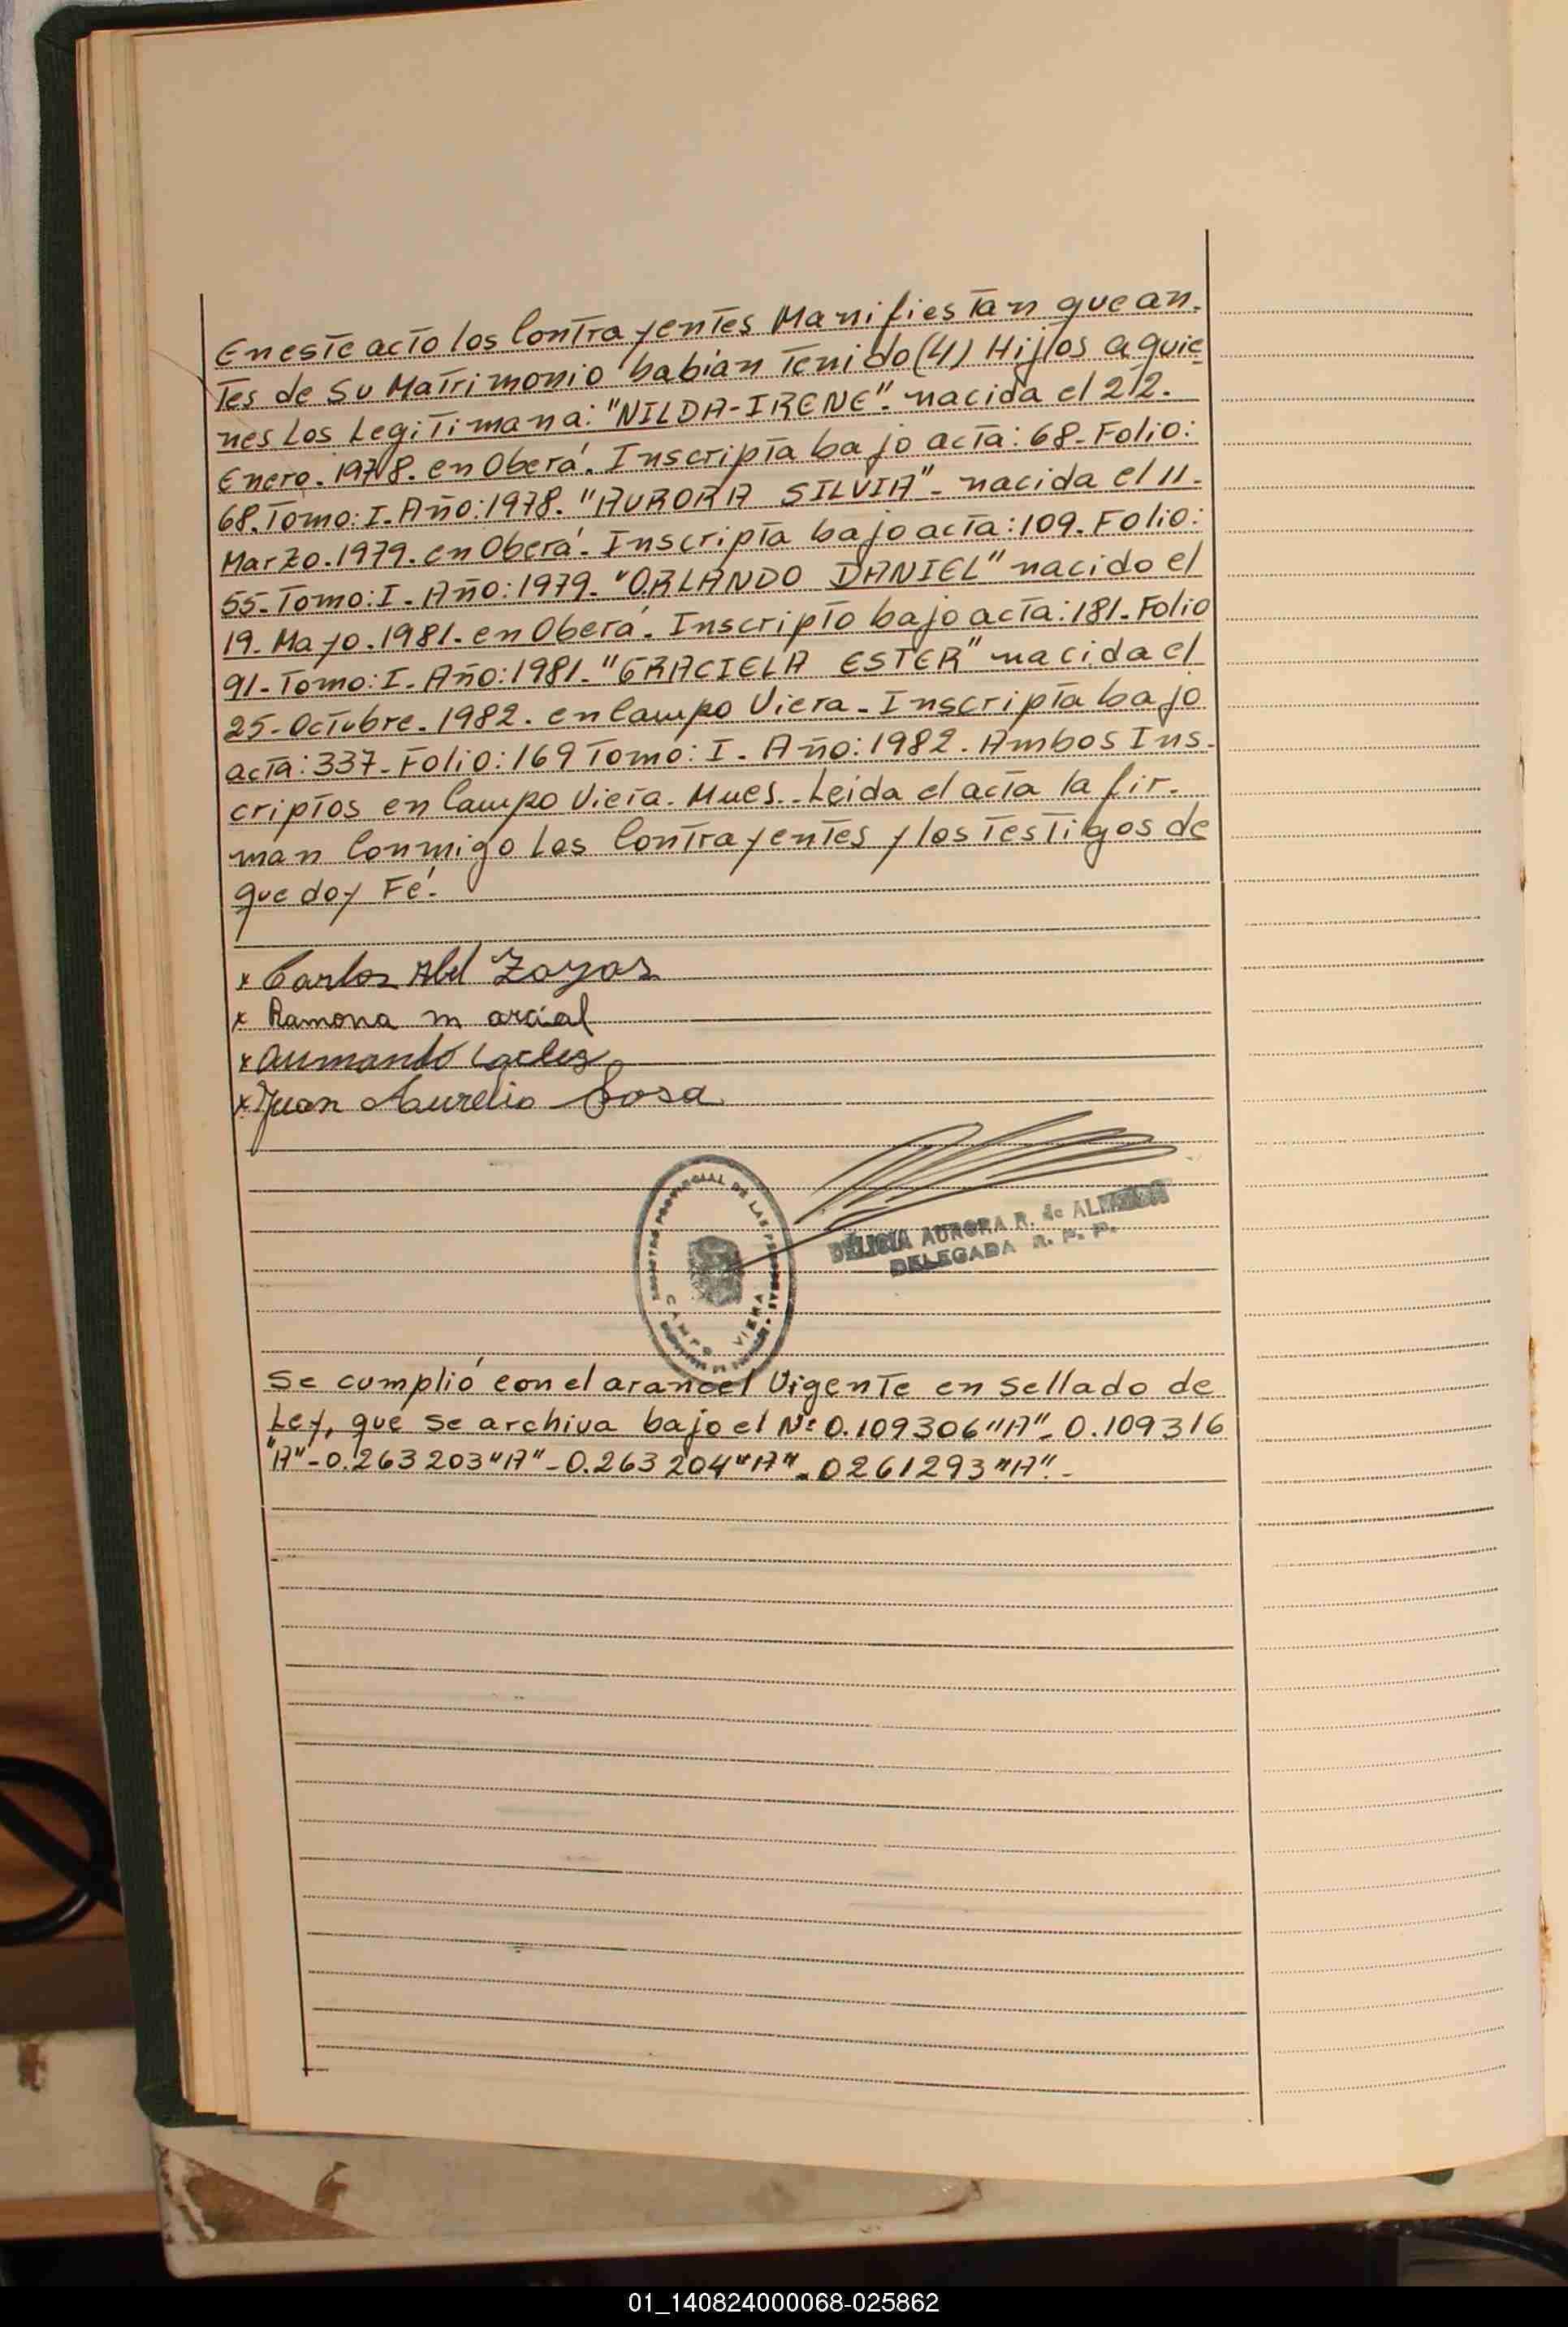 En este acto los Contrayentes Manifiestan que an-
tes de Su Matrimonio habian Tenido (4) Hijos a quie
nes Los Legitimana: "NILDA-IRENE". nacida el 22.
Enero. 1978. en Oberá. Inscripta bajo acta: 68- Folio:
68. Tomo: I. Año: 1978. "AURORA SILVIA" - nacida el 11.
Marzo. 1979. en Oberá - Inscripta bajo acta: 109. Folio:
55- Tomo: I - Año: 1979- "ORLANDO DANIEL" nacido el
19. Mayo. 1981. en Oberá. Inscripto bajo acta: 181- Folio
91- Tomo: I. Año: 1981- "GRACIELA ESTER" nacida el
25- Octubre. 1982. en Campo Viera - Inscripta bajo
acta: 337- Folio: 169 Tomo: I - Año: 1982. Ambos Ins-
criptos en Campo Viera. Mnes.- Leida el acta la fir-
man Conmigo Los Contrayentes y los Testigos de
que doy Fé.
x Carlos Abel Zoyas
x Ramona m arcial
x Armando
x Juan Aurelio Sosa
REGISTRO PROVINCIAL DE LAS PERSONAS
CAMPO VIERA
DELICIA AURORA R. de
DELEGADA R. P. P.
Se cumplió con el arancel Vigente en Sellado de
Ley, que se archiva bajo el Nº 0.109306 "A" - 0.109316
"A" - 0.263203 "A" - 0.263204 "A" - 0261293 "A". -
01_140824000068-025862